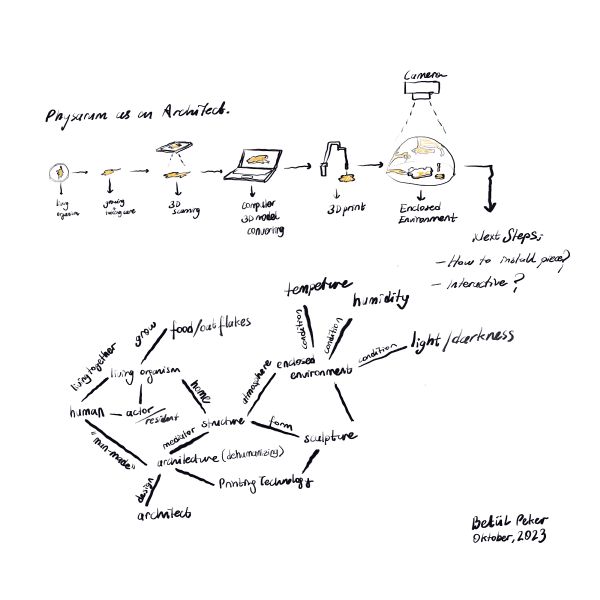 Camera
Physarum as an Architect.
living
organism
growing
+ taking care
3D
scanning
Computer
3D model
converting
3D print
Enclosed
Environment
Next Steps:
- How to install piece?
- Interactive?
tempeture
humidity
condition
condition
condition
light/darkness
grow
food/oatflakes
living together
living organism
home
atmosphere
enclosed
environment
human
actor
resident
structure
form
sculpture
mediator
"man-made"
architecture (dehumanizing)
Printing Technology
design
architect
Betül Peker
Oktober, 2023